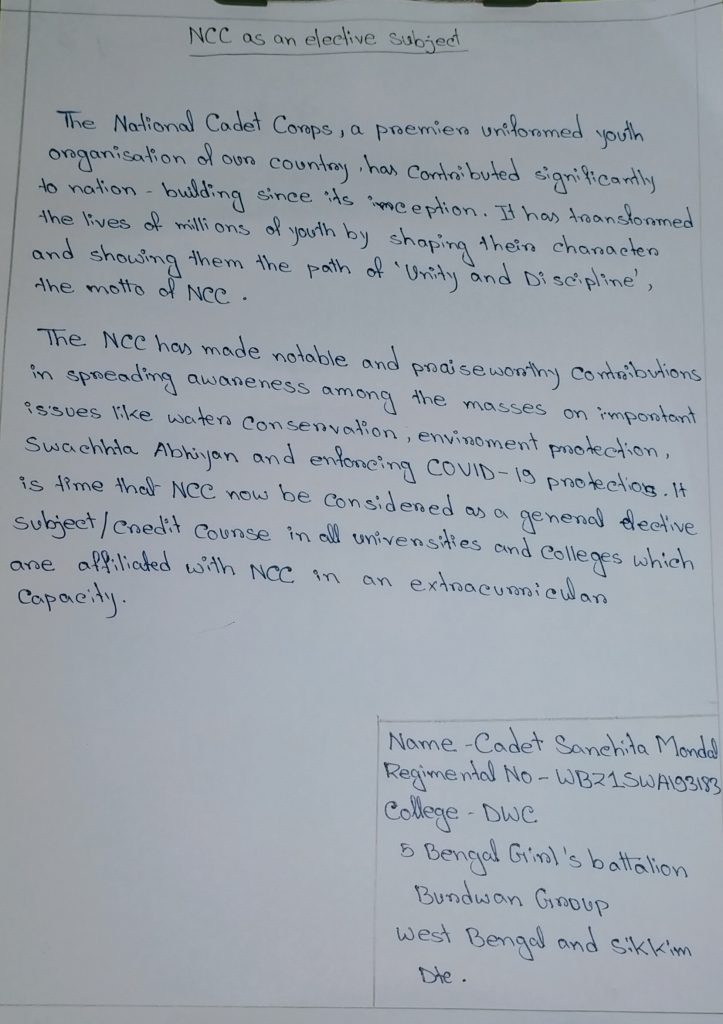 NCC as an elective subject
The National Cadet Corps, a premier uniformed youth
organisation of our country, has contributed significantly
to nation - building since its inception. It has transformed
the lives of millions of youth by shaping their character
and showing them the path of 'Unity and Discipline',
the motto of NCC.
The NCC has made notable and praiseworthy contributions
in spreading awareness among the masses on important
issues like water conservation, enviroment protection,
Swachhta Abhiyan and enforcing COVID-19 protection. It
is time that NCC now be considered as a general elective
subject/credit course in all universities and colleges which
are affiliated with NCC in an extracurricular
capacity.
Name - Cadet Sanchita Mondal
Regimental No - WB21SWA193183
College - DWC
5 Bengal Girl's battalion
Burdwan Group
West Bengal and Sikkim
Dte.